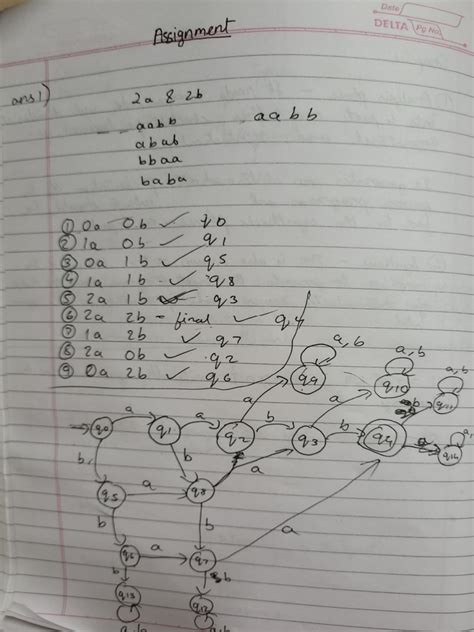 Date
DELTA Pg No.
Assignment
ans1)
2a & 2b
aabb aabb
abab
bbaa
baba
① 0a 0b ✓ q0
② 1a 0b ✓ q1
③ 0a 1b ✓ q5
④ 1a 1b ✓ q8
⑤ 2a 1b ✓ q3
⑥ 2a 2b - final ✓ q4
⑦ 1a 2b ✓ q7
⑧ 2a 0b ✓ q2
⑨ 0a 2b ✓ q6
a, b
a, b
a, b
q9
q10
q11
a a b
a a b b
q0 q1 q2 q3 q4
a
q12
b b a
q5 a q8
b b a
q6 a q7
b b
q13 q12
a, b a, b